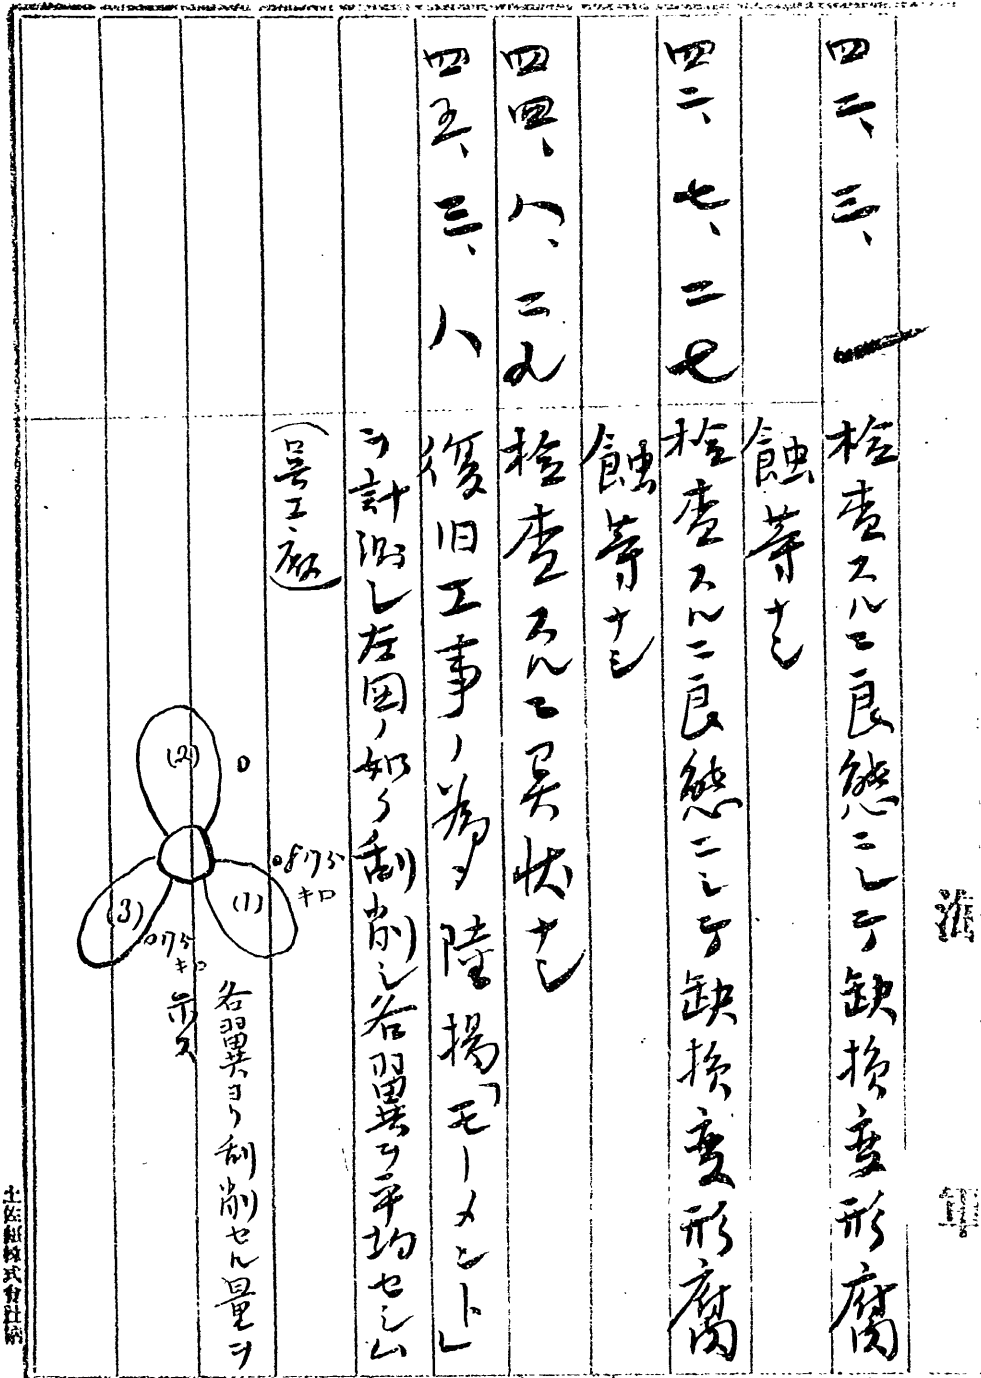 海軍
四二、三、一 検査スルニ良態ニシテ缺損変形腐
蝕等ナシ
四二、七、二七 検査スルニ良態ニシテ缺損変形腐
蝕等ナシ
四四、八、二九 検査スルニ異状ナシ
四五、三、八 復旧工事ノ為メ陸揚「モーメント」
ヲ計測シ左図ノ如ク刮削シ各翼ヲ平均セシム
(呉工廠)
(2)
0
(1)
キロ
(3)
キロ
各翼ヨリ刮削セル量ヲ
示ス